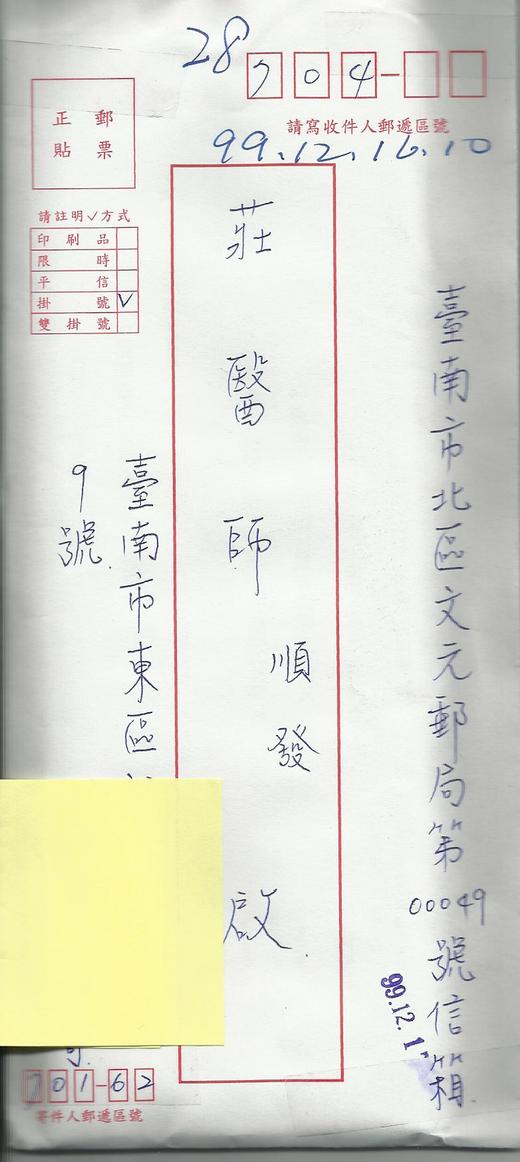 28
704-
請寫收件人郵遞區號
99.12.16.10
正郵
貼票
請註明✓方式
印刷品
限時
平信
掛號 ✓
雙掛號
臺南市北區文元郵局第00049號信箱
99.12.1
莊醫師順發啟
臺南市東區
9號
701-62
寄件人郵遞區號